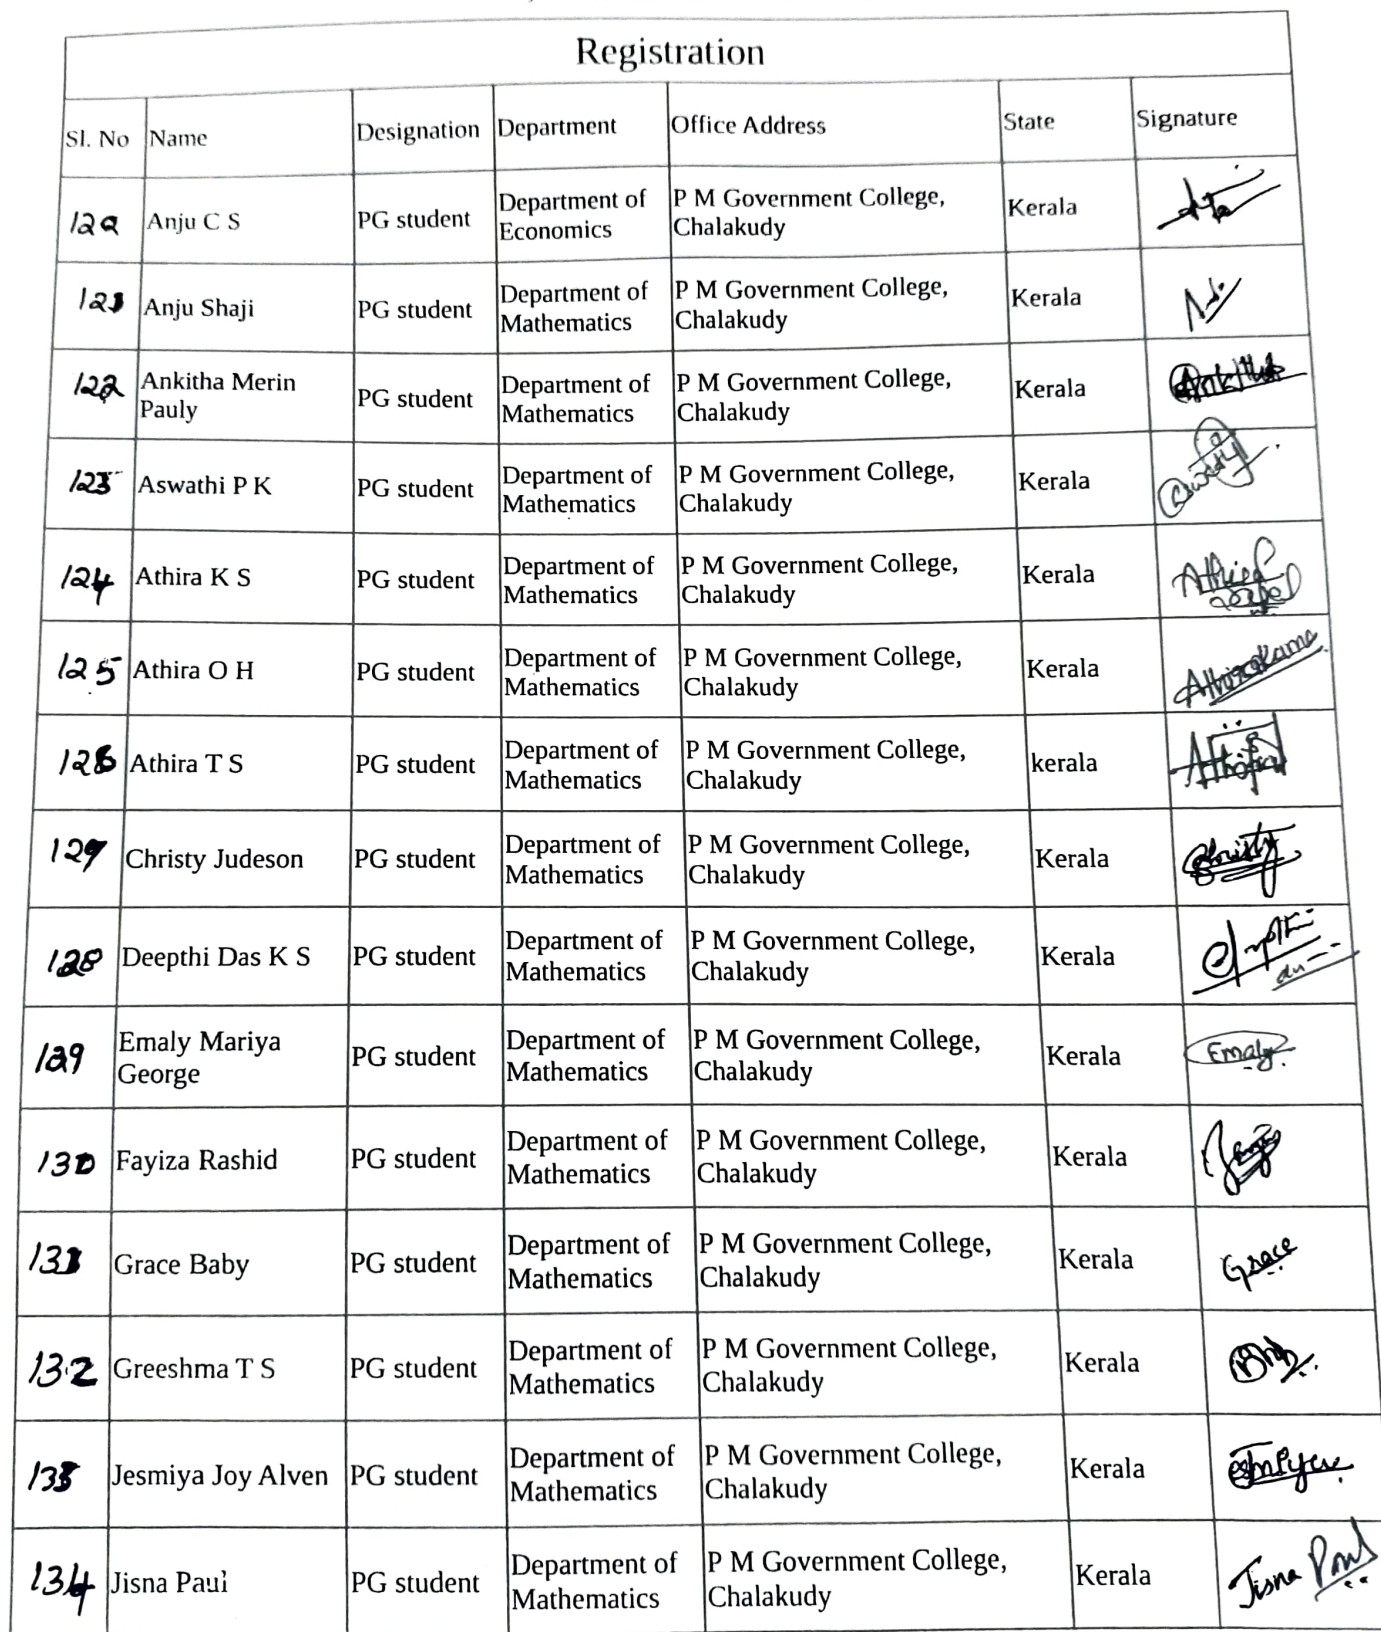 Registration
Sl. No Name Designation Department Office Address State Signature
120 Anju C S PG student Department of Economics P M Government College, Chalakudy Kerala
121 Anju Shaji PG student Department of Mathematics P M Government College, Chalakudy Kerala
122 Ankitha Merin Pauly PG student Department of Mathematics P M Government College, Chalakudy Kerala Ankitha
123 Aswathi P K PG student Department of Mathematics P M Government College, Chalakudy Kerala
124 Athira K S PG student Department of Mathematics P M Government College, Chalakudy Kerala
125 Athira O H PG student Department of Mathematics P M Government College, Chalakudy Kerala
126 Athira T S PG student Department of Mathematics P M Government College, Chalakudy kerala
127 Christy Judeson PG student Department of Mathematics P M Government College, Chalakudy Kerala Christy
128 Deepthi Das K S PG student Department of Mathematics P M Government College, Chalakudy Kerala
129 Emaly Mariya George PG student Department of Mathematics P M Government College, Chalakudy Kerala Emaly
130 Fayiza Rashid PG student Department of Mathematics P M Government College, Chalakudy Kerala
131 Grace Baby PG student Department of Mathematics P M Government College, Chalakudy Kerala Grace
132 Greeshma T S PG student Department of Mathematics P M Government College, Chalakudy Kerala
133 Jesmiya Joy Alven PG student Department of Mathematics P M Government College, Chalakudy Kerala
134 Jisna Paul PG student Department of Mathematics P M Government College, Chalakudy Kerala Jisna Paul